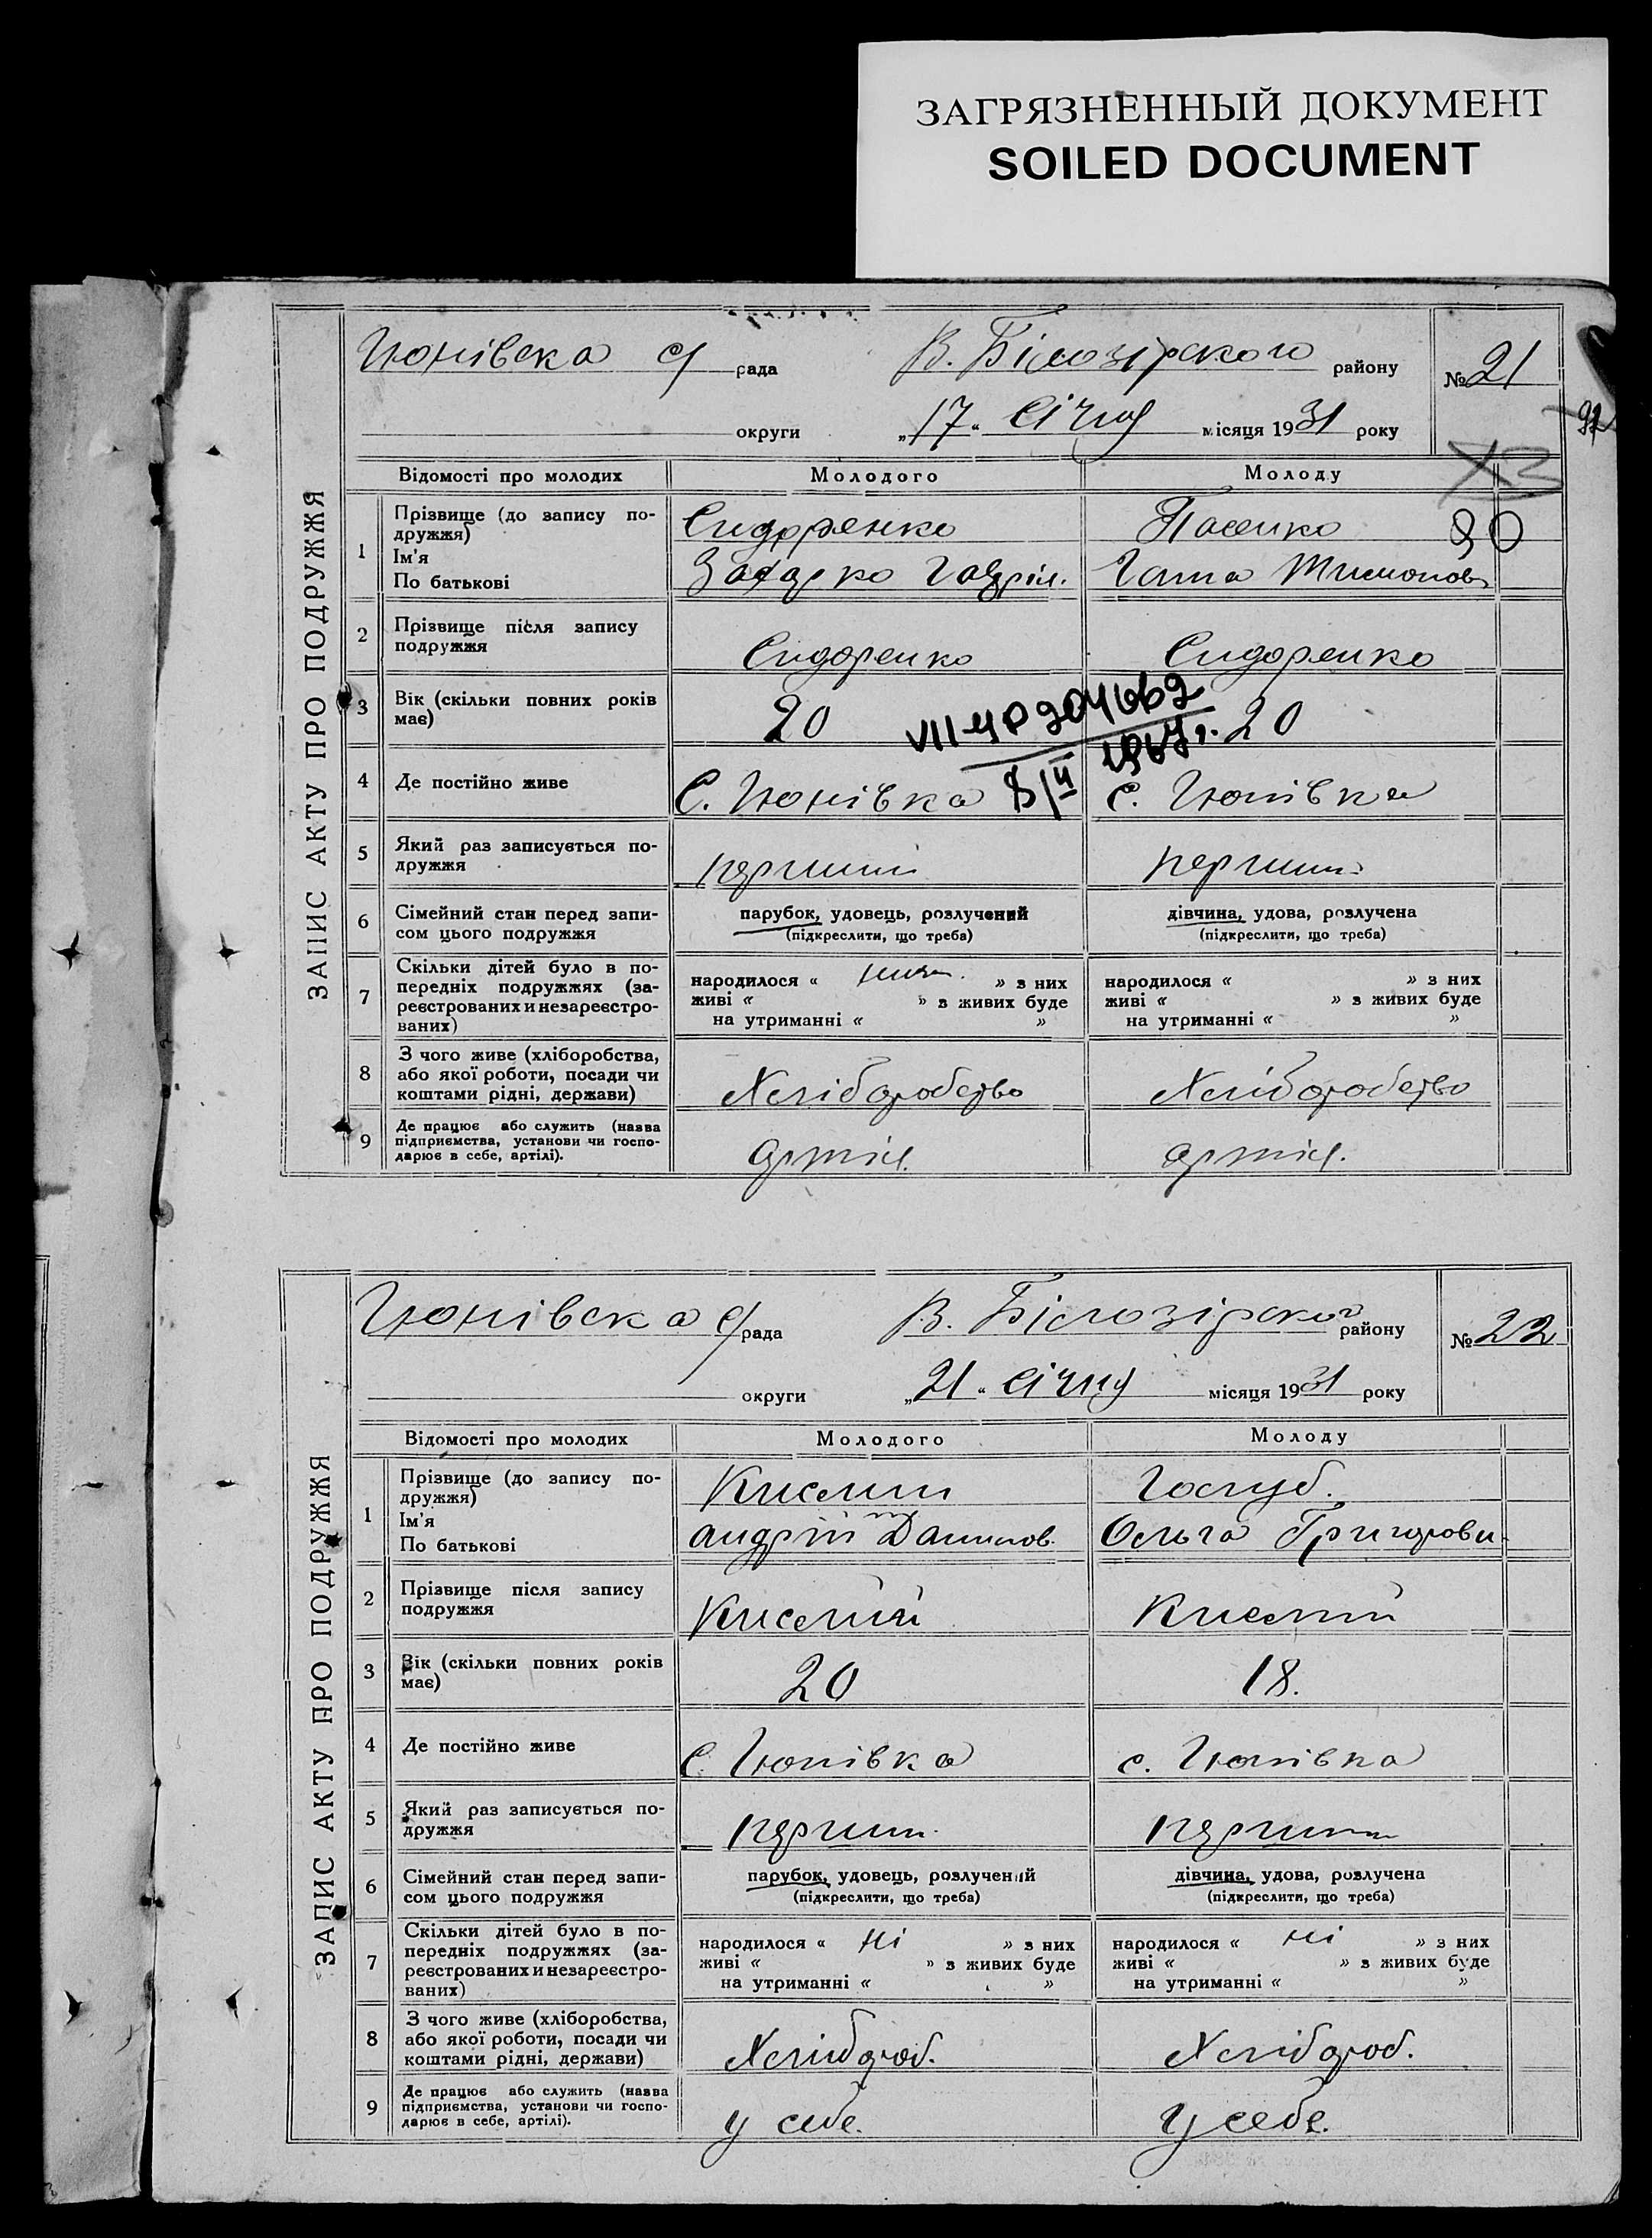 ЗАГРЯЗНЕННЫЙ ДОКУМЕНТ
SOILED DOCUMENT
ЗАПИС АКТУ ПРО ПОДРУЖЖЯ
Гюнівска с/рада В. Білозірського району № 21
округи „17“ Січня місяця 1931 року
92
Відомості про молодих Молодого Молоду
1 Прізвище (до запису по-
дружжя) Сидоренко Пасенко 90
Ім'я
По батькові Захарко Гаврил. Ганна Тимонов
2 Прізвище після запису
подружжя Сидоренко Сидоренко
3 Вік (скільки повних років
має) 20 20
1967 г.
4 Де постійно живе С. Гюнівка с. Гюнівка
5 Який раз записується по-
дружжя перший перший
6 Сімейний стан перед запи-
сом цього подружжя парубок, удовець, розлучений дівчина, удова, розлучена
(підкреслити, що треба) (підкреслити, що треба)
7 Скільки дітей було в по-
передніх подружжях (за-
реєстрованих и незареєстро-
ваних)
народилося « » з них народилося « » з них
живі « » з живих буде живі « » з живих буде
на утриманні « » на утриманні « »
8 З чого живе (хліборобства,
або якої роботи, посади чи
коштами рідні, держави) Хліборобство Хліборобство
9 Де працює або служить (назва
підприємства, установи чи госпо-
дарює в себе, артілі). артіл. артіл.
ЗАПИС АКТУ ПРО ПОДРУЖЖЯ
Гюнівска с/рада В. Білозірського району № 22
округи „21“ Січня місяця 1931 року
Відомості про молодих Молодого Молоду
1 Прізвище (до запису по-
дружжя) Киселий Голуб.
Ім'я
По батькові Андрій Данилов. Ольга Григорови
2 Прізвище після запису
подружжя Киселий Киселий
3 Вік (скільки повних років
має) 20 18.
4 Де постійно живе С. Гюнівка с. Гюнівка
5 Який раз записується по-
дружжя перший перший
6 Сімейний стан перед запи-
сом цього подружжя парубок, удовець, розлучений дівчина, удова, розлучена
(підкреслити, що треба) (підкреслити, що треба)
7 Скільки дітей було в по-
передніх подружжях (за-
реєстрованих и незареєстро-
ваних)
народилося « ні » з них народилося « ні » з них
живі « » з живих буде живі « » з живих буде
на утриманні « » на утриманні « »
8 З чого живе (хліборобства,
або якої роботи, посади чи
коштами рідні, держави) Хлібороб. Хлібороб.
9 Де працює або служить (назва
підприємства, установи чи госпо-
дарює в себе, артілі). у себе. у себе.